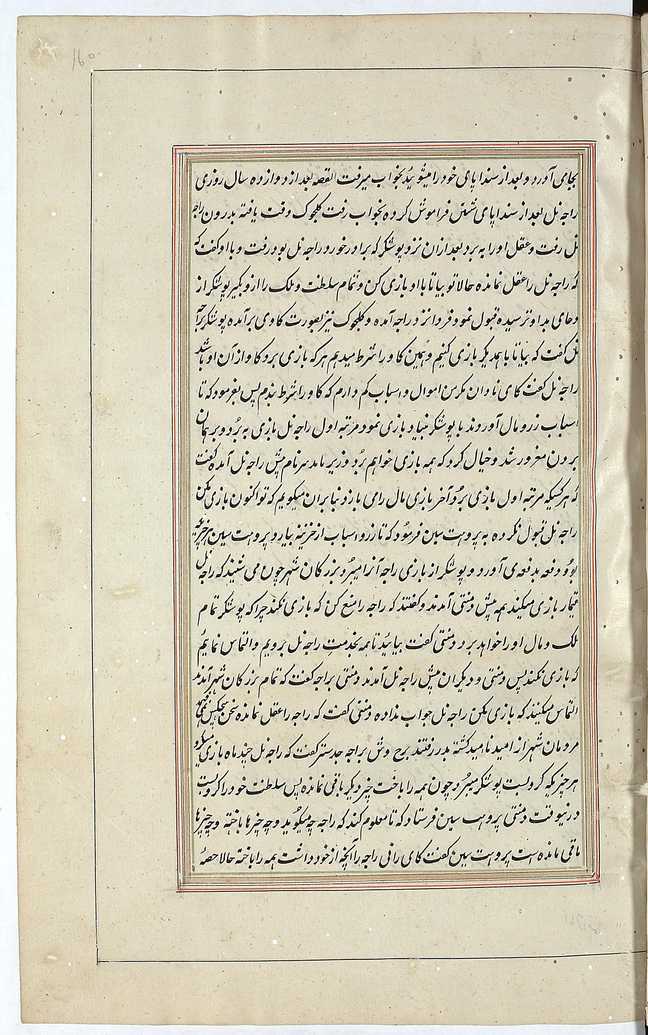 ۱۶۰
بجای آورد و بعد از سندا پای خود را میشوید بخواب میرفت القصه بعد از دوازده سال روزی
راجه نل بعد از سندا پای شستن فراموش کرده بخواب رفت کلجوک وقت یافته بدرون راجه
نل رفت و عقل او را به برد بعد از ان نزد پوشکر که برادر خورد راجه نل بود رفت و با او گفت که
که راجه نل را عقل نمانده حالا تو بیا تا با او بازی کن و تمام سلطنت و ملک را ازو بگیر پوشکر از
دعای بد او ترسیده قبول نمود فردا نزد راجه آمده و کلجوک نیز بصورت گاوی برآمده پوشکر براجه
نل گفت که بیا تا با همدیگر بازی کنیم و همین گاو را شرط میدهیم هر که بازی برد گاو از آن او باشد
راجه نل گفت کای نادان مگر من اموال و اسباب کم دارم که گاو را شرط بندم پس بفرمود که تا
اسباب زر و مال آوردند با پوشکر بنیاد بازی نمود مرتبه اول راجه نل بازی به برد و بر همان
بردن مغرور شد و خیال کرد که همه بازی خواهم برد وزیر مدبر نام پیش راجه نل آمده گفت
که هر کسیکه مرتبه اول بازی برد آخر بازی مال را می بازد بنابران میگویم که تو اکنون بازی مکن
راجه نل قبول نکرده به پروهت سین فرمود که تا زر و اسباب از خزینه بیارد پروهت سین هر چیزیکه
بود دفعه بدفعه می آورد و پوشکر از بازی راجه آنرا میبرد بزرگان شهر چون می شنیدند که راجه نل
قمار بازی میکند همه پیش دمنتی آمدند و گفتند که راجه را منع کن که بازی نکند چرا که پوشکر تمام
ملک و مال او را خواهد برد دمنتی گفت بیائید تا همه بخدمت راجه نل برویم و التماس نمایم
که بازی نکند پس دمنتی و دیگران پیش راجه نل آمدند دمنتی براجه گفت که تمام بزرگان شهر آمدند
التماس میکنند که بازی مکن راجه نل جواب نداده دمنتی گفت که راجه را عقل نمانده سخن هیچکس نمی فهمد
مردمان شهر از امید نامید گشته بدر رفتند برج وش براجه جدستر گفت که راجه نل چند ماه بازی میکرد
هر چیزیکه گرو بست پوشکر میبرد چون همه را باخت چیز دیگر باقی نمانده پس سلطنت خود را گرو بست
درنیوقت دمنتی پروهت سین فرستاد که تا معلوم کند که راجه چه میگوید و چه چیزها باخته و چه چیزها
باقی مانده است پروهت سین گفت کای رانی راجه را آنچه از خود داشت همه را باخته حالا حصه